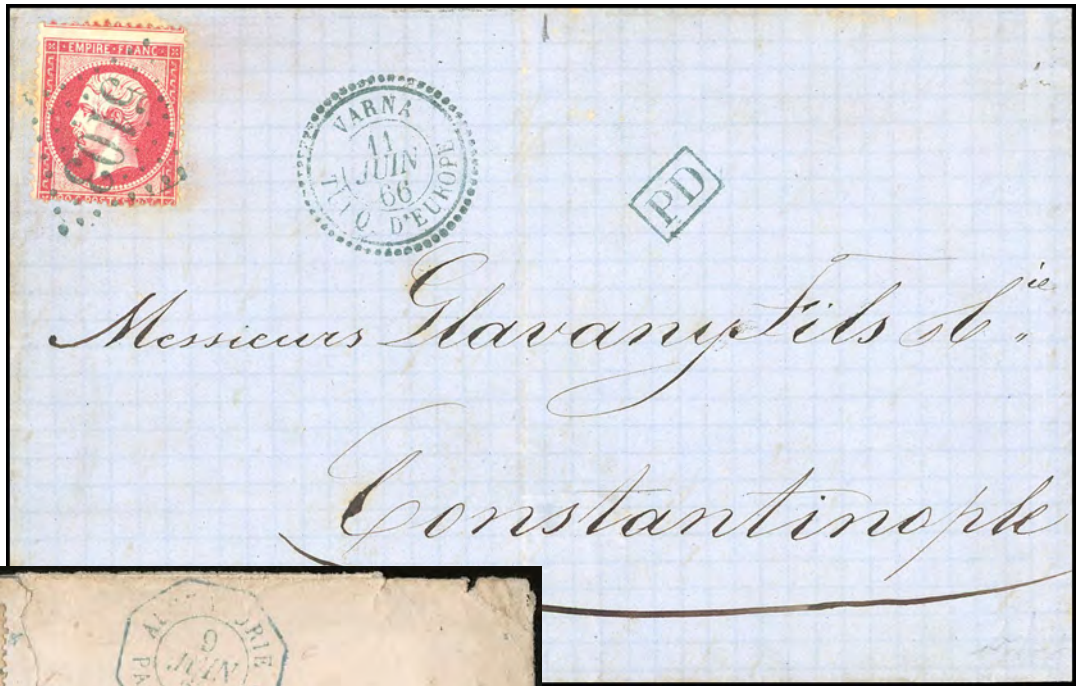 EMPIRE FRANC
VARNA
11
JUIN
66
TURQ. D'EUROPE
PD
Messieurs Glavany Fils & Cie
Constantinople
9
JUIN